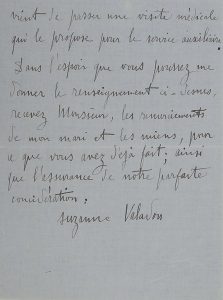 vient de passer une visite médicale
qui le propose pour le service auxiliaire.
Dans l'espoir que vous pourrez me
donner le renseignement ci-dessus,
recevez Monsieur, les remerciements
de mon mari et les miens, pour
ce que vous avez déjà fait; ainsi
que l'assurance de notre parfaite
considération.
Suzanne Valadon